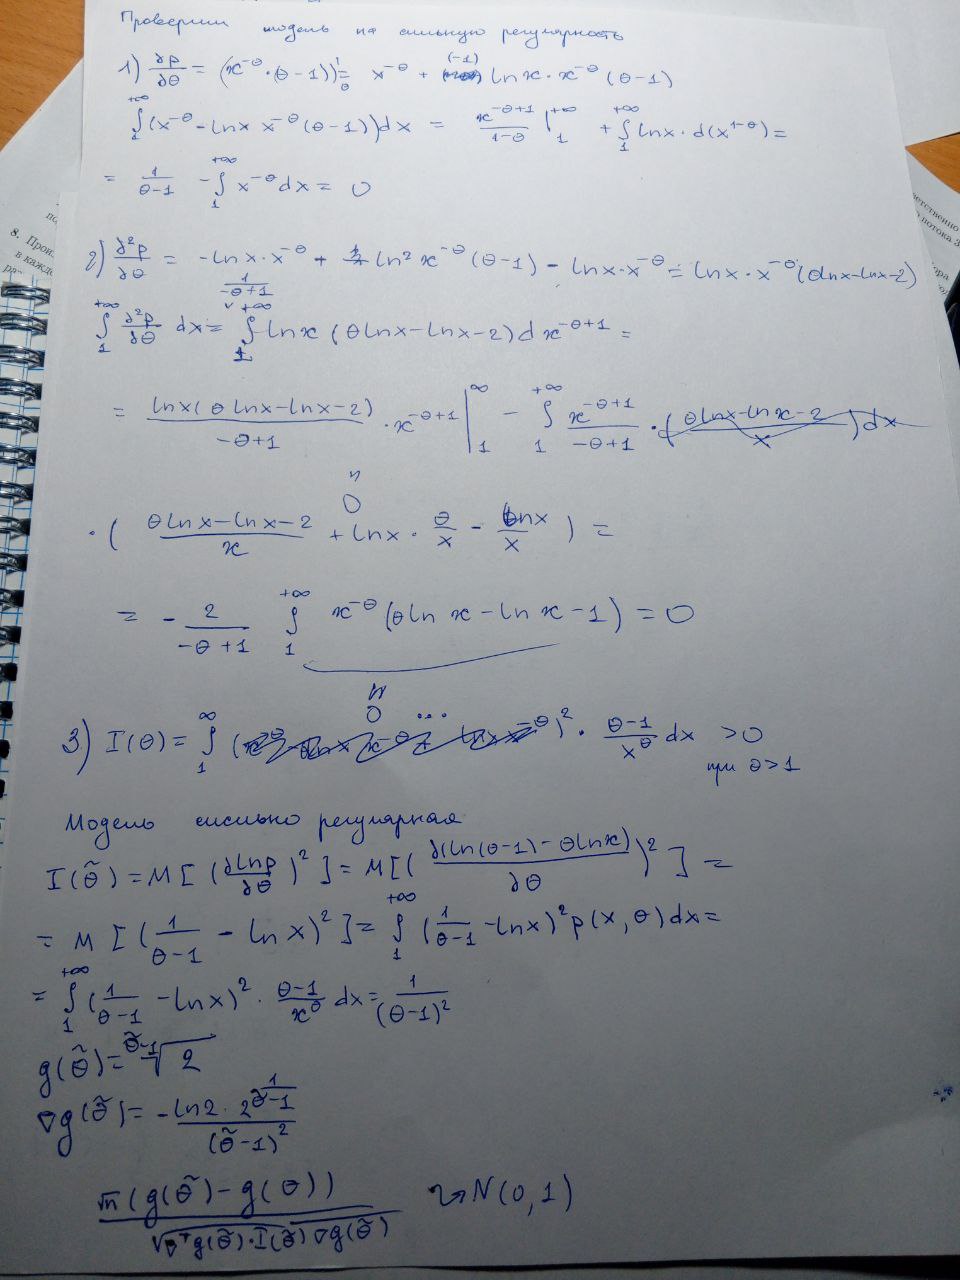 Проверим модель на сильную регулярность
1) ∂p/∂θ = (x^{-θ}·(θ-1))'_θ = x^{-θ} + (-1) ln x · x^{-θ} (θ-1)
∫_1^{+∞} (x^{-θ} - ln x x^{-θ}(θ-1)) dx = x^{-θ+1}/(1-θ) |_1^{+∞} + ∫_1^{+∞} ln x · d(x^{1-θ}) =
= 1/(θ-1) - ∫_1^{+∞} x^{-θ} dx = 0
2) ∂²p/∂θ = -ln x · x^{-θ} + ln² x^{-θ} (θ-1) - ln x · x^{-θ} = ln x · x^{-θ} (θ ln x - ln x - 2)
∫_1^{+∞} ∂²p/∂θ dx = 1/(-θ+1) ∫_1^{+∞} ln x (θ ln x - ln x - 2) d x^{-θ+1} =
= ln x (θ ln x - ln x - 2)/(-θ+1) · x^{-θ+1} |_1^∞ - ∫_1^{+∞} x^{-θ+1}/(-θ+1) ·
" 0
· ( (θ ln x - ln x - 2)/x + ln x · θ/x - ln x/x ) =
= - 2/(-θ+1) ∫_1^{+∞} x^{-θ} (θ ln x - ln x - 1) = 0
" 0 ...
3) I(θ) = ∫_1^∞ ( )² · (θ-1)/x^θ dx > 0
при θ > 1
Модель сильно регулярная
I(θ̃) = M[(∂ln p/∂θ)²] = M[(∂(ln(θ-1) - θ ln x)/∂θ)²] =
= M[(1/(θ-1) - ln x)²] = ∫_1^{+∞} (1/(θ-1) - ln x)² p(x, θ) dx =
= ∫_1^{+∞} (1/(θ-1) - ln x)² · (θ-1)/x^θ dx = 1/(θ-1)²
g(θ̃) = ^{θ̃-1}√2
∇g(θ̃) = -ln 2 · 2^{1/(θ̃-1)} / (θ̃-1)²
√n (g(θ̃) - g(θ)) / √(∇ᵀg(θ̃) · I(θ̃) ∇g(θ̃)) ⇝ N(0, 1)
8. Прои
в кажд